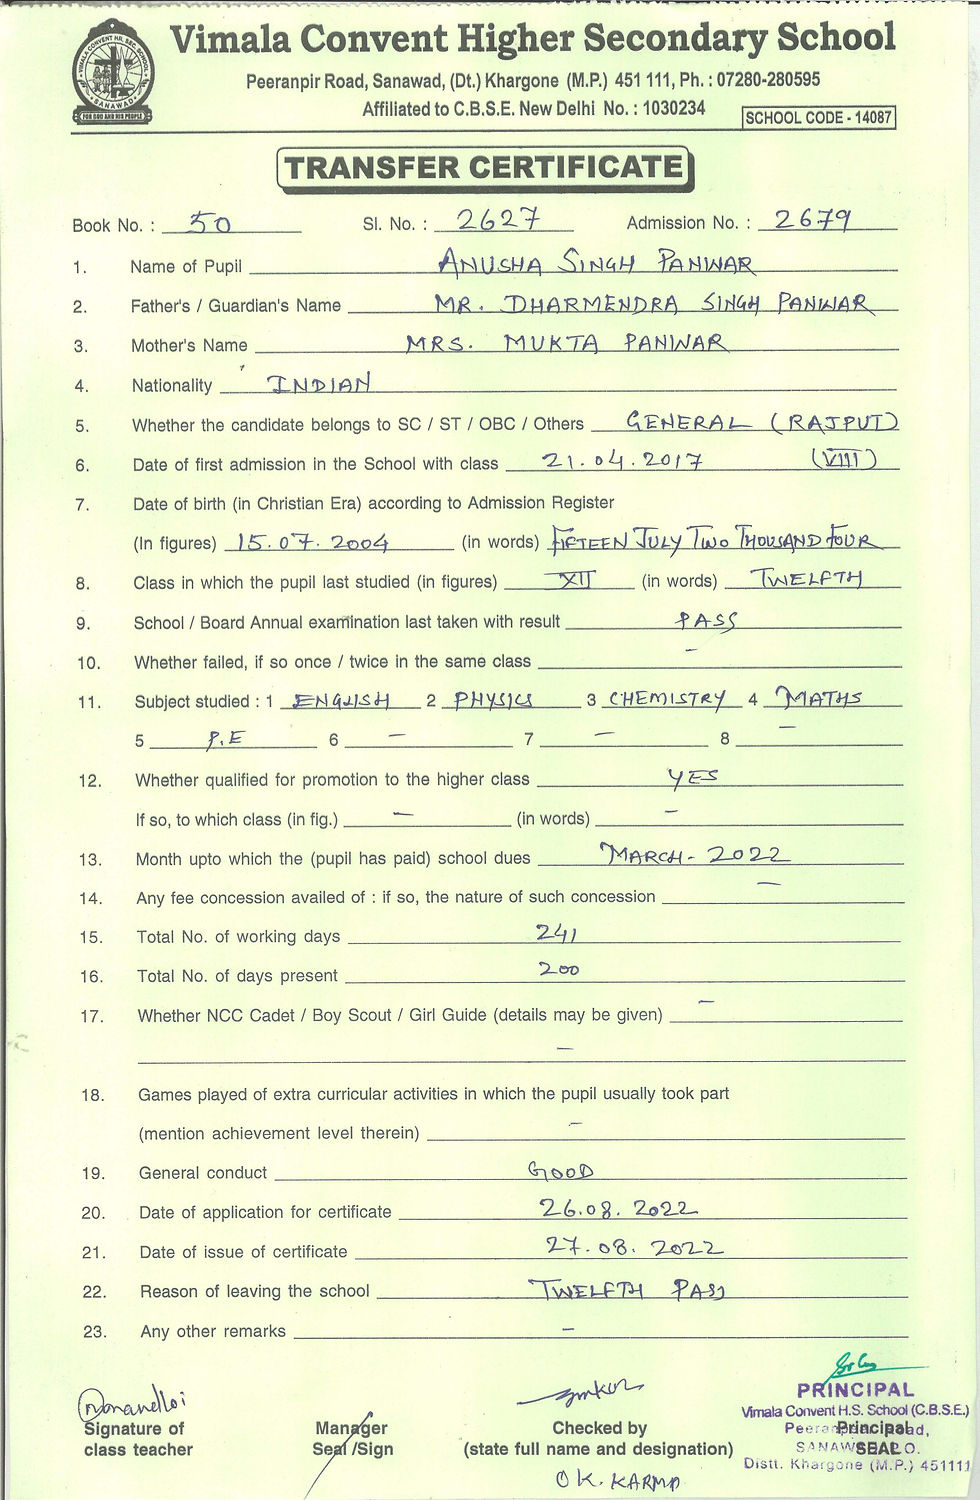 VIMALA CONVENT HR. SEC. SCHOOL
SANAWAD
FOR GOD AND HIS PEOPLE
Vimala Convent Higher Secondary School
Peeranpir Road, Sanawad, (Dt.) Khargone (M.P.) 451 111, Ph. : 07280-280595
Affiliated to C.B.S.E. New Delhi No. : 1030234
SCHOOL CODE - 14087
TRANSFER CERTIFICATE
Book No. : 50 Sl. No. : 2627 Admission No. : 2679
1. Name of Pupil ANUSHA SINGH PANWAR
2. Father's / Guardian's Name MR. DHARMENDRA SINGH PANWAR
3. Mother's Name MRS. MUKTA PANWAR
4. Nationality INDIAN
5. Whether the candidate belongs to SC / ST / OBC / Others GENERAL (RAJPUT)
6. Date of first admission in the School with class 21.04.2017 (VIII)
7. Date of birth (in Christian Era) according to Admission Register
(In figures) 15.07.2004 (in words) FIFTEEN JULY TWO THOUSAND FOUR
8. Class in which the pupil last studied (in figures) XII (in words) TWELFTH
9. School / Board Annual examination last taken with result PASS
10. Whether failed, if so once / twice in the same class -
11. Subject studied : 1 ENGLISH 2 PHYSICS 3 CHEMISTRY 4 MATHS
5 P.E 6 - 7 - 8 -
12. Whether qualified for promotion to the higher class YES
If so, to which class (in fig.) - (in words) -
13. Month upto which the (pupil has paid) school dues MARCH-2022
14. Any fee concession availed of : if so, the nature of such concession -
15. Total No. of working days 241
16. Total No. of days present 200
17. Whether NCC Cadet / Boy Scout / Girl Guide (details may be given) -
-
18. Games played of extra curricular activities in which the pupil usually took part
(mention achievement level therein) -
19. General conduct GOOD
20. Date of application for certificate 26.08.2022
21. Date of issue of certificate 27.08.2022
22. Reason of leaving the school TWELFTH PASS
23. Any other remarks -
PRINCIPAL
Vimala Convent H.S. School (C.B.S.E.)
Signature of Manager Checked by Principal
class teacher Seal /Sign (state full name and designation) SEAL
Distt. Khargone (M.P.) 451111